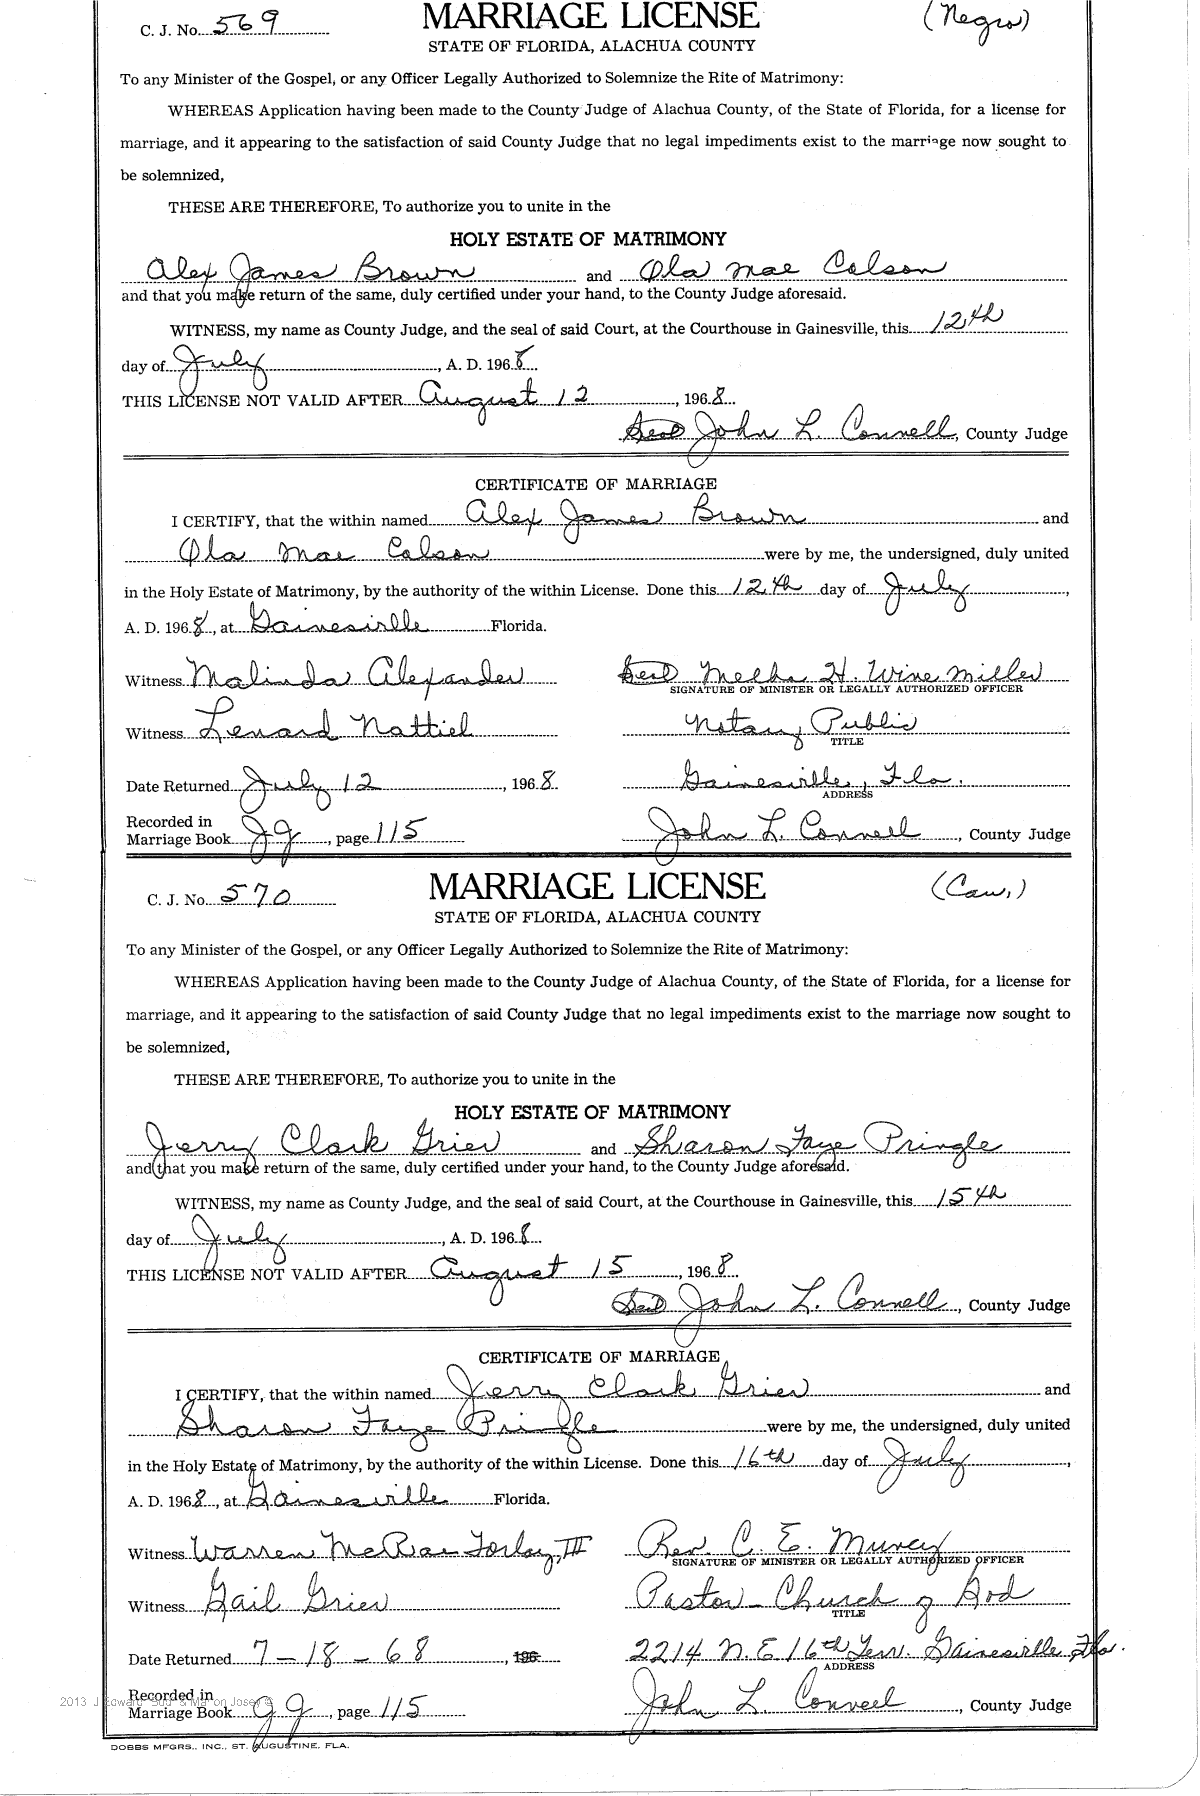 C. J. No. 569 MARRIAGE LICENSE (Negro)
STATE OF FLORIDA, ALACHUA COUNTY
To any Minister of the Gospel, or any Officer Legally Authorized to Solemnize the Rite of Matrimony:
WHEREAS Application having been made to the County Judge of Alachua County, of the State of Florida, for a license for
marriage, and it appearing to the satisfaction of said County Judge that no legal impediments exist to the marriage now sought to
be solemnized,
THESE ARE THEREFORE, To authorize you to unite in the
HOLY ESTATE OF MATRIMONY
Alex James Brown and Ola Mae Colson
and that you make return of the same, duly certified under your hand, to the County Judge aforesaid.
WITNESS, my name as County Judge, and the seal of said Court, at the Courthouse in Gainesville, this 12th
day of July, A. D. 1968
THIS LICENSE NOT VALID AFTER August 12, 1968
Seal John L. Connell, County Judge
CERTIFICATE OF MARRIAGE
I CERTIFY, that the within named Alex James Brown and
Ola Mae Colson were by me, the undersigned, duly united
in the Holy Estate of Matrimony, by the authority of the within License. Done this 12th day of July,
A. D. 1968, at Gainesville Florida.
Witness Malinda Alexander Seal Melba H. Wine Miller
SIGNATURE OF MINISTER OR LEGALLY AUTHORIZED OFFICER
Witness Lenard Nattiel Notary Public
TITLE
Date Returned July 12, 1968 Gainesville, Fla.
ADDRESS
Recorded in
Marriage Book gg, page 115 John L. Connell, County Judge
C. J. No. 570 MARRIAGE LICENSE (Cau.)
STATE OF FLORIDA, ALACHUA COUNTY
To any Minister of the Gospel, or any Officer Legally Authorized to Solemnize the Rite of Matrimony:
WHEREAS Application having been made to the County Judge of Alachua County, of the State of Florida, for a license for
marriage, and it appearing to the satisfaction of said County Judge that no legal impediments exist to the marriage now sought to
be solemnized,
THESE ARE THEREFORE, To authorize you to unite in the
HOLY ESTATE OF MATRIMONY
Jerry Clark Grier and Sharon Faye Pringle
and that you make return of the same, duly certified under your hand, to the County Judge aforesaid.
WITNESS, my name as County Judge, and the seal of said Court, at the Courthouse in Gainesville, this 15th
day of July, A. D. 1968
THIS LICENSE NOT VALID AFTER August 15, 1968
Seal John L. Connell, County Judge
CERTIFICATE OF MARRIAGE
I CERTIFY, that the within named Jerry Clark Grier and
Sharon Faye Pringle were by me, the undersigned, duly united
in the Holy Estate of Matrimony, by the authority of the within License. Done this 16th day of July,
A. D. 1968, at Gainesville Florida.
Witness Warren McRae Forlay, III Rev. C. E. Muncy
SIGNATURE OF MINISTER OR LEGALLY AUTHORIZED OFFICER
Witness Gail Grier Pastor - Church of God
TITLE
Date Returned 7-18-68, 196 2214 N.E 16th Terr. Gainesville, Fla.
ADDRESS
Recorded in
Marriage Book gg, page 115 John L. Connell, County Judge
DOBBS MFGRS., INC., ST. AUGUSTINE, FLA.